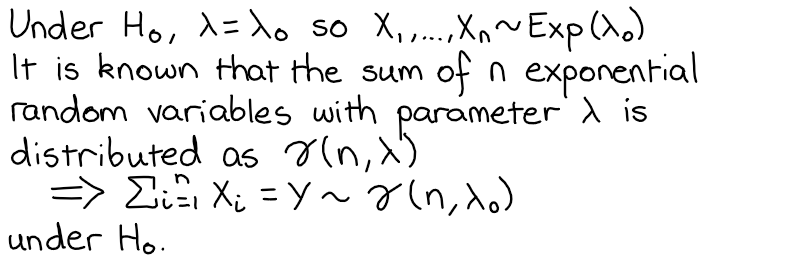 Under H₀, λ = λ₀ so X₁,...,Xₙ ~ Exp(λ₀)
It is known that the sum of n exponential
random variables with parameter λ is
distributed as γ(n,λ)
⇒ ∑ᵢ₌₁ⁿ Xᵢ = Y ~ γ(n,λ₀)
under H₀.